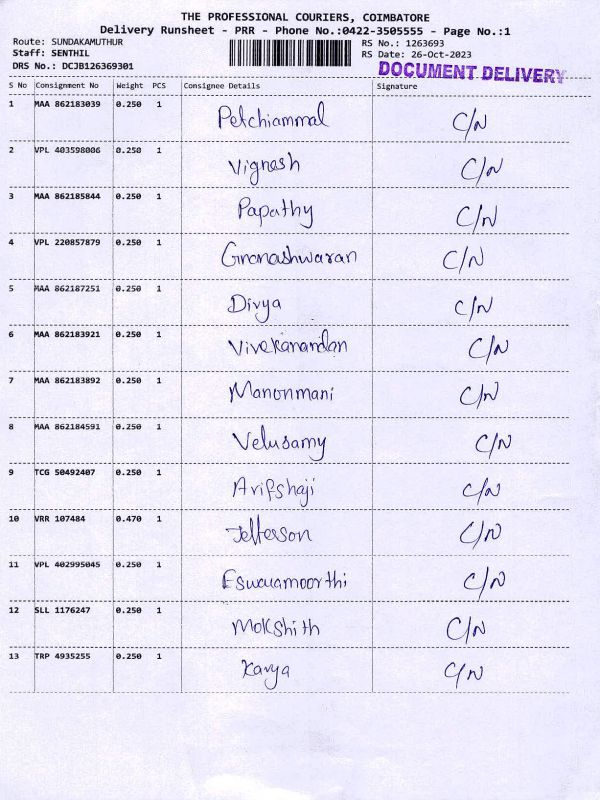 THE PROFESSIONAL COURIERS, COIMBATORE
Delivery Runsheet - PRR - Phone No.:0422-3505555 - Page No.:1
Route: SUNDAKAMUTHUR RS No.: 1263693
Staff: SENTHIL RS Date: 26-Oct-2023
DRS No.: DCJB126369301 DOCUMENT DELIVERY
S No Consignment No Weight PCS Consignee Details Signature
1 MAA 862183039 0.250 1 Petchiammal C/N
2 VPL 403598006 0.250 1 Vignesh C/N
3 MAA 862185844 0.250 1 Papathy C/N
4 VPL 220857879 0.250 1 Gnanashwaran C/N
5 MAA 862187251 0.250 1 Divya C/N
6 MAA 862183921 0.250 1 Vivekanandan C/N
7 MAA 862183892 0.250 1 Manonmani C/N
8 MAA 862184591 0.250 1 Velusamy C/N
9 TCG 50492407 0.250 1 Arifshaji C/N
10 VRR 107484 0.470 1 Jefferson C/N
11 VPL 402995045 0.250 1 Eswaramoorthi C/N
12 SLL 1176247 0.250 1 Mokshith C/N
13 TRP 4935255 0.250 1 Kavya C/N